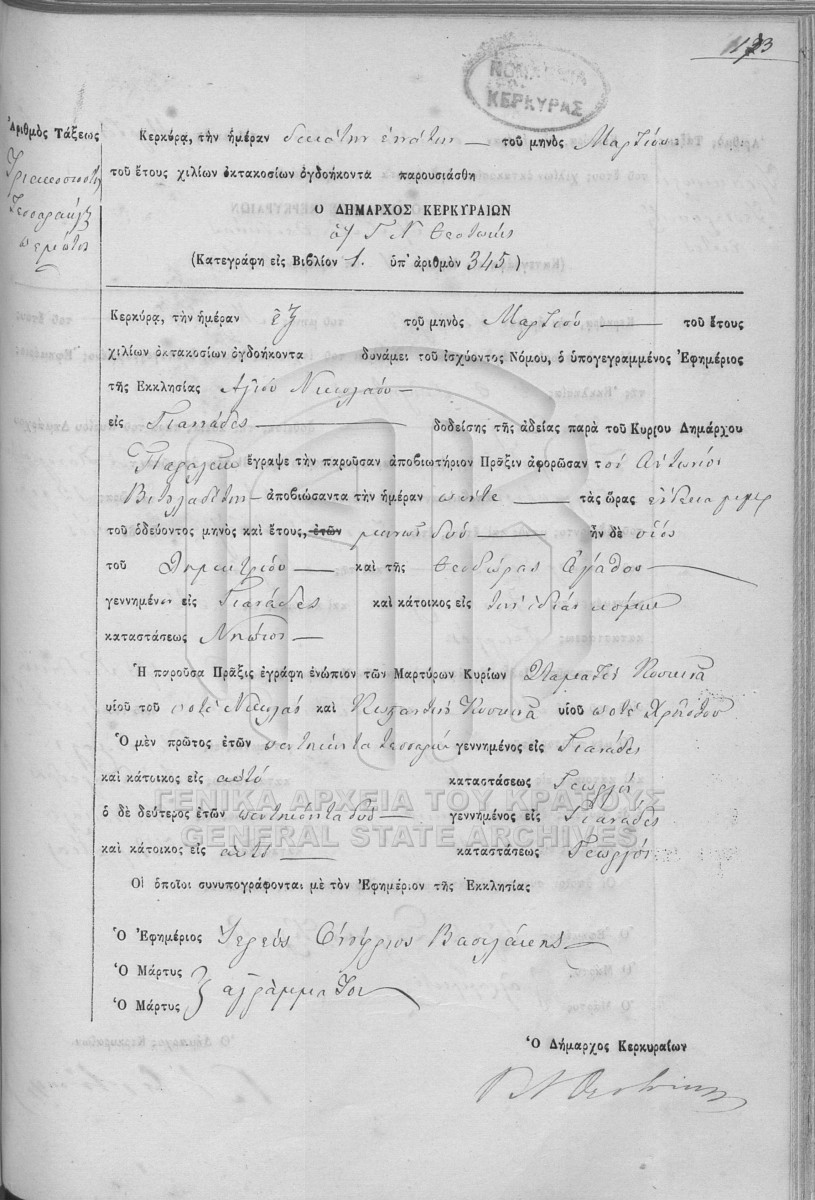 ΝΟΜΑΡΧΙΑ
ΚΕΡΚΥΡΑΣ
Ἀριθμὸς Τάξεως
Τριακοσιοστὴ
πέμπτη
Κερκύρᾳ, τὴν ἡμέραν δεκάτην ἐνάτην τοῦ μηνὸς Μαρτίου
τοῦ ἔτους χιλίων ὀκτακοσίων ὀγδοήκοντα παρουσιάσθη
Ο ΔΗΜΑΡΧΟΣ ΚΕΡΚΥΡΑΙΩΝ
Θεοτόκης
(Κατεγράφη εἰς Βιβλίον 1. ὑπ' ἀριθμὸν 345)
Κερκύρᾳ, τὴν ἡμέραν ἓξ τοῦ μηνὸς Μαρτίου τοῦ ἔτους
χιλίων ὀκτακοσίων ὀγδοήκοντα δυνάμει τοῦ ἰσχύοντος Νόμου, ὁ ὑπογεγραμμένος Ἐφημέριος
τῆς Ἐκκλησίας Ἁγίου Νικολάου
εἰς Γιανάδες δοδείσης τῆς ἀδείας παρὰ τοῦ Κυρίου Δημάρχου
ἔγραψε τὴν παροῦσαν ἀποβιωτήριον Πρᾶξιν ἀφορῶσαν τὸν Ἀντώνιον
ἀποβιώσαντα τὴν ἡμέραν πέντε τὰς ὥρας ἕνδεκα
τοῦ ὁδεύοντος μηνὸς καὶ ἔτους, ἐτῶν μηνῶν δύο ἦν δὲ υἱὸς
τοῦ Δημητρίου καὶ τῆς Θεοδώρας Ἀγάθος
γεννημένον εἰς Γιανάδες καὶ κάτοικος εἰς τὴν ἰδίαν κώμην
καταστάσεως Νήπιον
Ἡ παροῦσα Πρᾶξις ἐγράφη ἐνώπιον τῶν Μαρτύρων Κυρίων Σταμάτη Κοσκινᾶ
υἱοῦ τοῦ ποτὲ Νικολάου καὶ Κωσταντὴ Κοσκινᾶ υἱοῦ ποτὲ Χρήστου
Ὁ μὲν πρῶτος ἐτῶν πεντήκοντα τεσσάρων γεννημένος εἰς Γιανάδες
καὶ κάτοικος εἰς αὐτὸ καταστάσεως Γεωργὸς
ὁ δὲ δεύτερος ἐτῶν πεντήκοντα δύο γεννημένος εἰς Γιανάδες
καὶ κάτοικος εἰς αὐτὸ καταστάσεως Γεωργὸς
Οἱ ὁποῖοι συνυπογράφονται μὲ τὸν Ἐφημέριον τῆς Ἐκκλησίας
Ὁ Ἐφημέριος Ἱερεὺς Βασιλάκης
Ὁ Μάρτυς
ἀγράμματοι
Ὁ Μάρτυς
Ὁ Δήμαρχος Κερκυραίων
ΓΕΝΙΚΑ ΑΡΧΕΙΑ ΤΟΥ ΚΡΑΤΟΥΣ
GENERAL STATE ARCHIVES